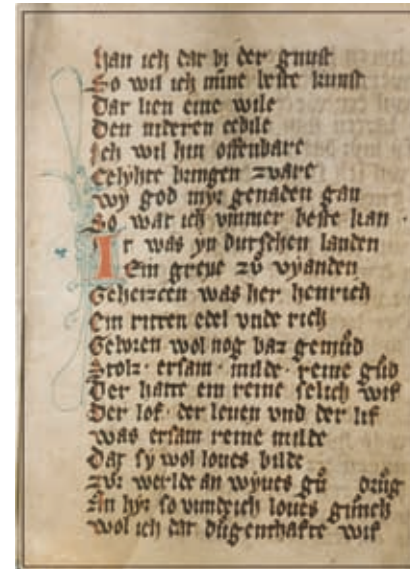 han ich dar bi der gunst
So wil ich mine beste kunst
Dar lien eine wile
Den nideren
Ich wil hin offenbare
bringen zware
wy god myr genaden gan
So war ich ymmer beste kan ·
Ir was yn dutschen landen
Ein greue zů vyanden
Geheizcen was her henrich
Ein ritten edel vnde rich
Geboren wol nog baz gemůd
Stolz · ersam · milde · reine gůd
Der hatte ein reine selich wif
Der lof · der leuen vnd der lif
was ersam reine milde
Dar sy wol loues bilde
zůr werlde an wyues gů drůg
An hyr so vundich loues
wol ich dat dugenthafte wif